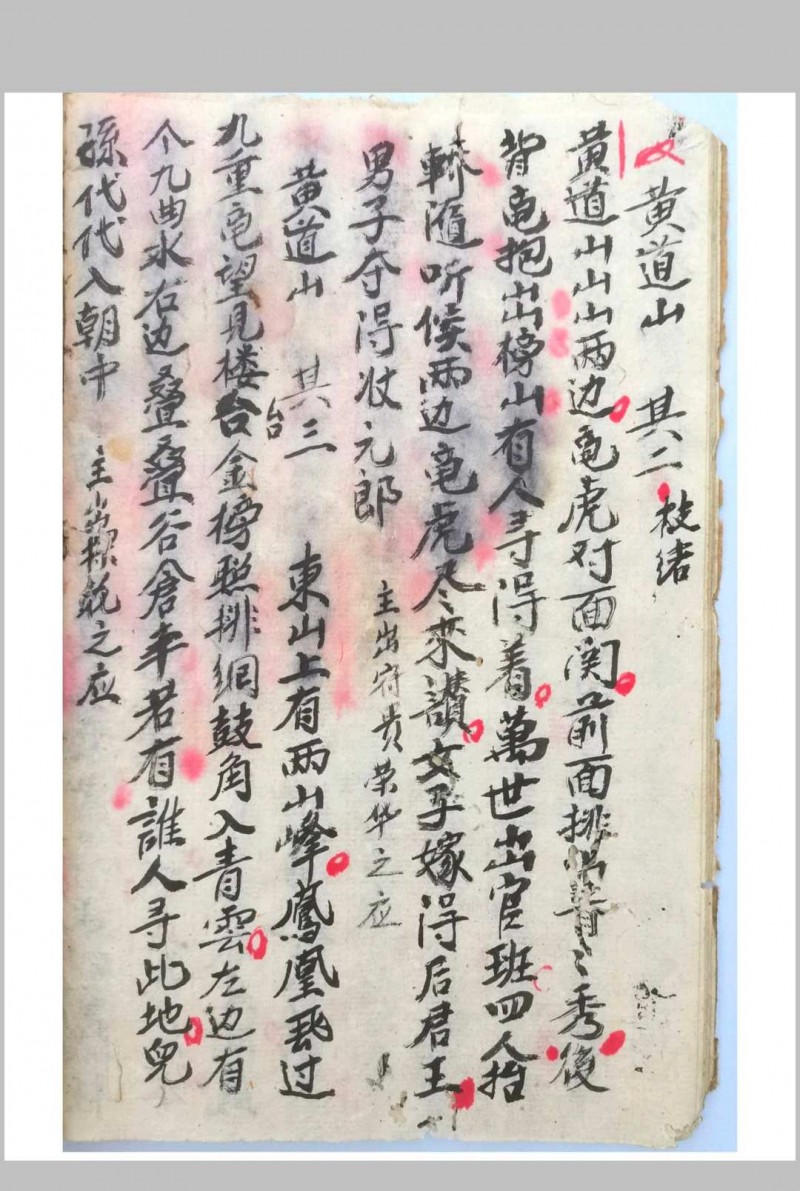 黄道山 其二 枝绪
黄道山山山两边黾虎对面関前面排出青〻秀後
背黾抱出榜山有人寻得着萬世出官班四人抬
轎随听候两边黾虎尽来讃女子嫁得后君王
男子夺得壮元郎 主出符贵荣华之应
黄道山 其三 東山上有两山峰鳳凰飛过
九重黾望見楼台金榜照排綱鼓角入青雲左边有
个九曲水右边叠叠谷倉車若有誰人寻此地兒
孫代代入朝中 主出之应